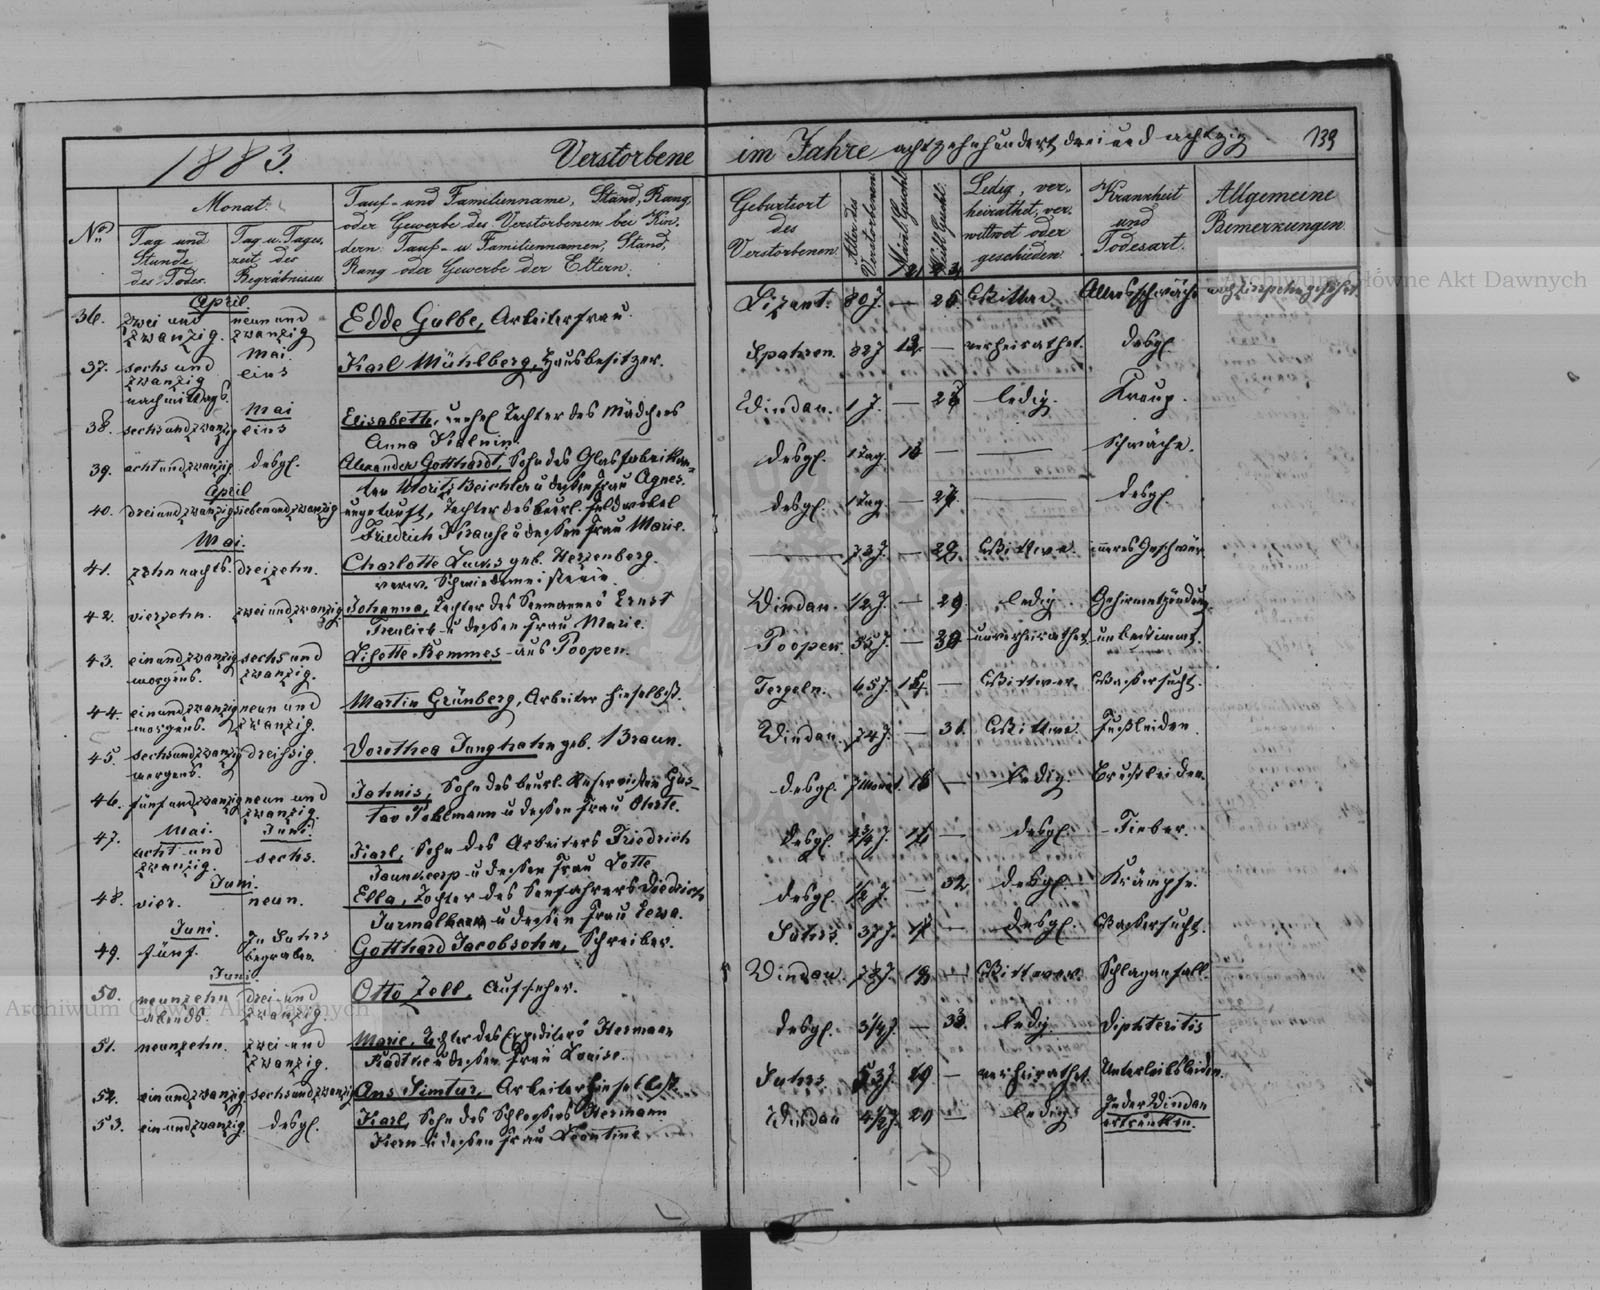 1883.
Verstorbene
im Jahre achtzehnhundert drei und achtzig
139
No.
Monat.
Tag und Stunde des Todes.
Tag u. Tageszeit des Begräbnisses
Tauf- und Familienname, Stand, Rang
oder Gewerbe des Verstorbenen bei Kin-
dern: Tauf- u Familiennamen, Stand,
Rang oder Gewerbe der Eltern.
Geburtsort des Verstorbenen.
Alter des Verstorbenen
Männl. Geschl.
Weibl. Geschl.
Ledig, ver-
heirathet, ver-
wittwet oder
geschieden.
Krankheit und Todesart.
Allgemeine Bemerkungen.
April
36. zwei und zwanzig. neun und zwanzig Edde Gulbe, Arbeiterfrau. 80 J. — 26. Wittwe. Altersschwäche
Mai.
37. sechs und zwanzig nachmittags. eins Karl Mühlberg, Hausbesitzer. Spahren. 82 J — verheirathet. desgl.
Mai
38. sechs und zwanzig eins Elisabeth, unehel Tochter des Mädchens
Anna Kalnin. Windau. 1 J. — ledig. Kroup.
39. acht und zwanzig desgl. Alexander Gotthardt, Sohn des Glasfabrikan-
ten Moritz Beichler u dessen Frau Agnes. desgl. 1 Tag. — Schwäche.
April
40. drei und zwanzig sieben und zwanzig ungetauft, Tochter des beurl. Feldwebel
Friedrich Krause u dessen Frau Marie. desgl. 1 Tag. — 27. — desgl.
Mai.
41. zehn nachts. dreizehn. Charlotte Lucas geb. Herzenberg.
verw. Schmiedemeisterin. — 73 J. — 28. Wittwe. inneres Geschwür
42. vierzehn. zwei und zwanzig Johanna, Tochter des Seemannes Ernst
Freulieb u dessen Frau Marie. Windau. 1/2 J. — 29. ledig. Gehirnentzündung.
43. ein und zwanzig morgens. sechs und zwanzig. Lisette Remmes aus Poopen. Poopen 35 J. — 30 unverheirathet unbestimmt.
44. ein und zwanzig morgens. neun und zwanzig. Martin Grünberg, Arbeiter hieselbst. Tergeln. 65 J. — Wittwer. Wassersucht.
45. sechs und zwanzig morgens. dreissig. Dorothea Junghahn geb. Braun. Windau. 74 J. — 31. Wittwe. Fußleiden.
46. fünf und zwanzig neun und zwanzig. Jahnis, Sohn des beurl. Reservisten Gus-
tav Pohlmann u dessen Frau Ohrte. desgl. 7 Monat. — ledig. Brustleiden.
Mai. Juni.
47. acht und zwanzig. sechs. Karl, Sohn des Arbeiters Friedrich
Jaunkeesp u dessen Frau Lotte desgl. 4 3/4 J. — desgl. Fieber.
Juni.
48. vier. neun. Ella, Tochter des Seefahrers Diedrich
u dessen Frau Lewa. desgl. 1/2 J. — 32. desgl. Krämpfe.
Juni.
49. fünf. In Sahrs begraben. Gotthard Jacobsohn, Schreiber. Sahrs 37 J. — desgl. Wassersucht.
Juni.
50. neunzehn abends. drei und zwanzig. Otto Zell, Aufseher. Windau. 73 J. 18 — Wittwer. Schlaganfall.
51. neunzehn. zwei und zwanzig. Marie, Tochter des Expeditors Hermann
u dessen Frau Louise. desgl. 3 1/4 J. — 33. ledig. Diphteritis
52. ein und zwanzig sechs und zwanzig Ans Simtur, Arbeiter hieselbst. Sahrs 53 J. 19 — verheirathet. Unterleibsleiden.
53. ein und zwanzig desgl. Karl, Sohn des Schlossers Hermann
Kern u dessen Frau Leontine Windau 4 1/2 J. 20 — ledig. In der Windau
ertrunken.
Archiwum Główne Akt Dawnych
Archiwum Główne Akt Dawnych